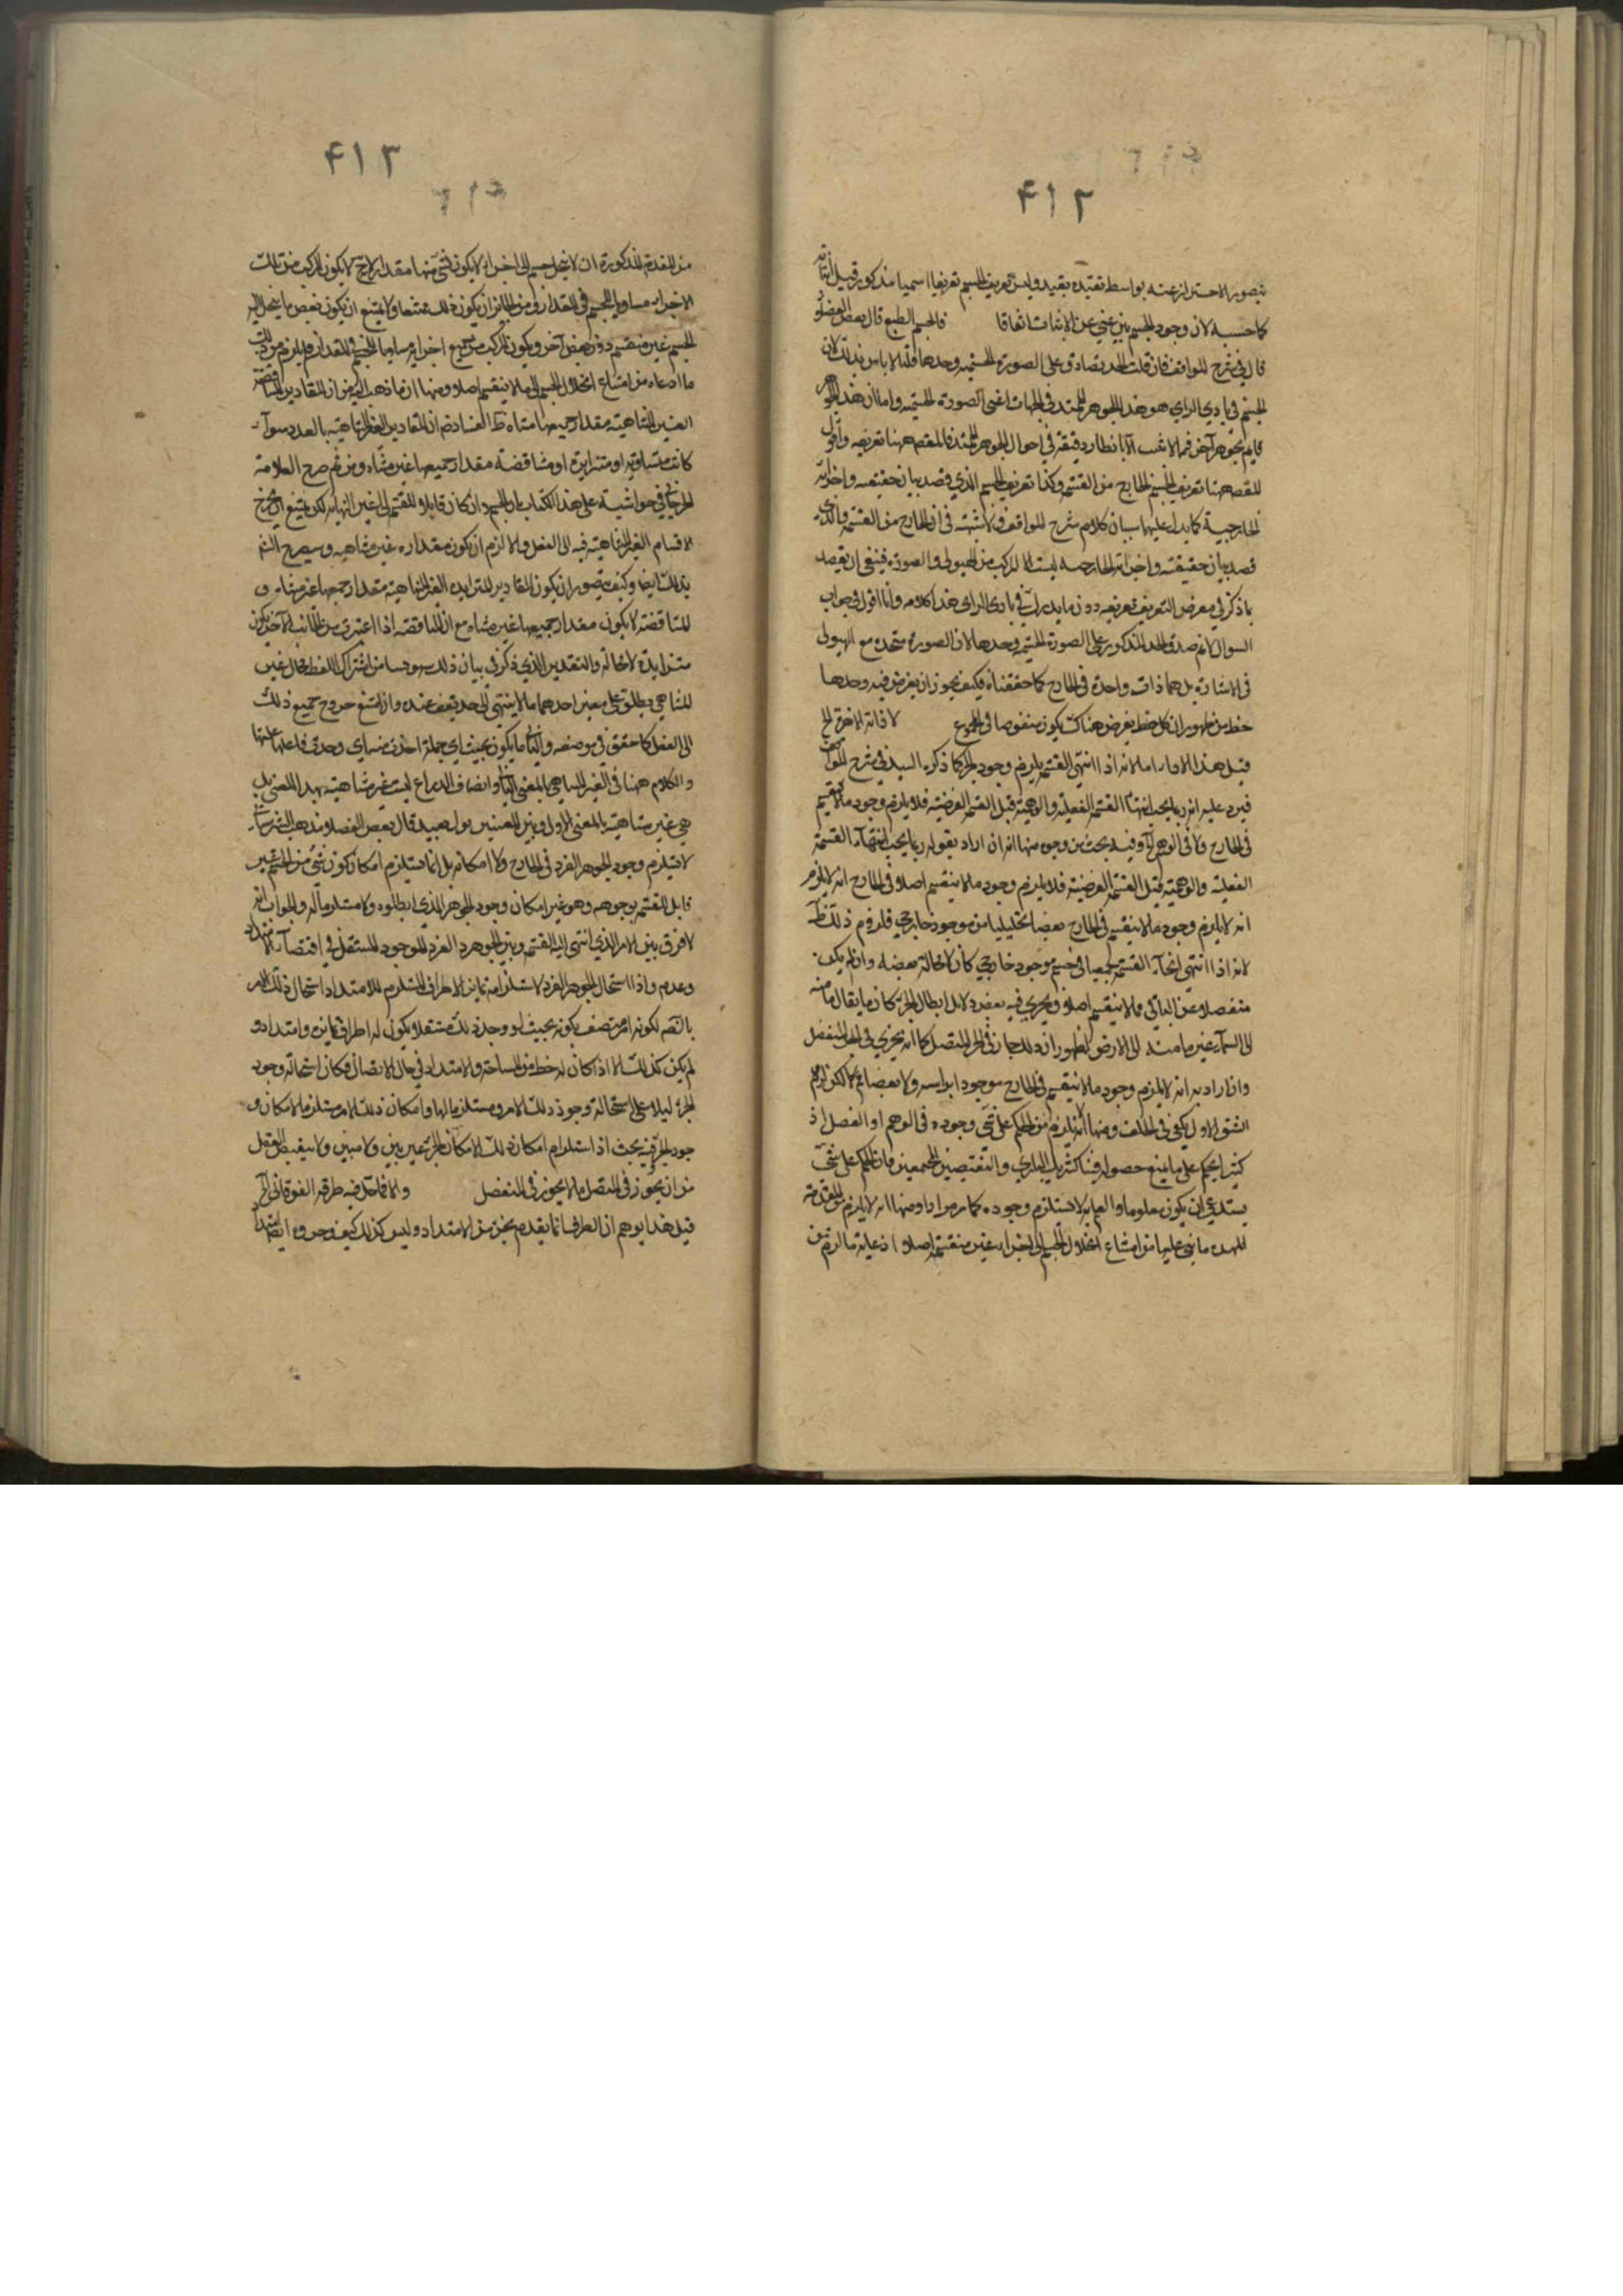 ۴۱۲
يتصور الاحتراز عنه بواسطة تقييده بقيد وليس تعريف الجسم تعريفا اسميا مذكور قبيل اثباته
كما حسبه لان وجود الجسم بين غني عن الاثبات اتفاقا فالجسم الطبيع قال بعض الفضلاء
قال في شرح المواقف فان قلت الحد يصادق على الصورة الجسمية وحدها قلنا لا باس بذلك لان
الجسم في بادي الراي هو هذا الجوهر الممتد في الجهات اعني الصورة الجسمية واما ان هذا الجوهر
قايم بجوهر آخر فمما لا يثبت الا بانظار دقيقة في احوال الجوهر الممتد فالمقصد ههنا تعريفه واقول
المقصد ههنا تعريف الجسم الخارج من القسمة وكذا تعريف الجسم الذي قصد بيان حقيقته واجزائه
الخارجية كما يدل عليها سياق كلام شرح المواقف ولا شبهة في ان الخارج من القسمة والذي
قصد بيان حقيقته واجزائه الخارجية ليست الا المركب من الهيولى والصورة فينبغي ان يقصد
بما ذكر في معرض التعريف تعريفه دون ما يدرك في بادي الراي هذا كلامه وانا اقول في جواب
السوال لا نم صدق الحد المذكور على الصورة الجسمية وحدها لان الصورة متحدة مع الهيولى
في الاشارة بل هما ذات واحدة في الخارج كما حققناه فكيف يجوز ان يفرض فيه وحدها
خط من ظهور ان كل خط يفرض هناك يكون مفروضا في المجموع لا فانه الاخرة الخ
قيل هذا اما لانه اذا انتهى القسمة يلزم وجود الجزء كما ذكره السيد في شرح المواقف
فيرد عليه انه ربما يجب انتهاء القسمة الفعلية والوهمية قبل القسمة الفرضية فلا يلزم وجود ما لا ينقسم
في الخارج ولا في الوهم وفيه بحث من وجوه منها انه ان اراد بقوله ربما يجب انتهاء القسمة
الفعلية والوهمية قبل القسمة الفرضية فلا يلزم وجود ما لا ينقسم اصلا في الخارج انه لا يلزم
انه لا يلزم وجود ما لا ينقسم في الخارج بعضا تحليليا من موجود خارجي فلزوم ذلك ظ
لانه اذا انتهى انحاء القسمة بجميعها في جسم موجود خارجي كان لا محالة بعضه وان لم يكن
منفصلا عن الباقي مما لا ينقسم اصلا ويجري فيه بعض دلايل ابطال الجزء كان ما يقال ما منه
الى السماء غير ما منه الى الارض لظهور ان ذلك جار في الجزء المتصل كما انه يجري في الجزء المنفصل
وان اراد به انه لا يلزم وجود ما لا ينقسم في الخارج موجودا براسه ولا بعضا لكن لزوم
الشق الاول يكفي في الخلف ومنها انه يلزم من الحكم على شي وجوده في الوهم او الفصل اذ
كثيرا يحكم على ما يمتنع حصوله فينا كشريك الباري والنقيضين المجتمعين فان الحكم على شي
يستدعي ان يكون معلوما والعلم به لا يستلزم وجوده كما مر مرارا ومنها انه لا يلزم المقدمة
الممهدة ما بنى عليها من امتناع انحلال الجسم الى اجزاء غير منقسمة اصلا اذ غاية ما لزم من
۴۱۳
من المقدمة المذكورة ان لا ينحل جسم الى اجزاء لا يكون شي منها مقدار لانه لا يكون المركب من تلك
الاجزاء مساويا للجسم في المقدار ومن الجائز ان يكون ذلك ممتنعا ولا يمتنع ان يكون بعض ما ينحل اليه
الجسم غير منقسم دون بعض آخر ويكون المركب من جميع اجزائه مساويا للجسم في المقدار فلا يلزم من ذلك
ما ادعاه من امتناع انحلال الجسم الى ما لا ينقسم اصلا ومنها ان ما ذهب اليه من ان المقادير المتناقصة
الغير المتناهية مقدار جميعها متناه ظ الفساد ضم ان المقادير الغير المتناهية بالعدد سواء
كانت متساوية او متزايدة او متناقصة مقدار جميعها غير متناه ومن ثم صرح العلامة
الجرجاني في حواشيه على هذا الكتاب بان الجسم وان كان قابلا للقسمة الى غير النهاية لكن يمتنع ان يخرج
الاقسام الغير المتناهية فيه الى الفعل والا لزم ان يكون مقداره غير متناهية وسيصرح الشم
بذلك ايضا وكيف يتصور ان يكون المقادير المتزايدة الغير المتناهية مقدار جميعها غير متناه و
المتناقصة لا يكون مقدار جميعها غير متناه مع ان المتناقصة اذا اعتبرت من الجانب الاخر يكون
متزايدة لا محالة والتقدير الذي ذكر في بيان ذلك سهو نشا من اشتراك اللفظ فان غير
المتناهي يطلق على معنيين احدهما ما لا ينتهي الى حد يقف عنده وان امتنع خروج جميع ذلك
الى الفعل كما حقق في موضعه والثاني ما يكون بحيث اي جملة اخذت منه اي وحدة فاعلها عليها
والكلام ههنا في الغير المتناهي بالمعنى الثاني وانصاف الذراع ليست غير متناهية بهذا المعنى بل
هي غير متناهية بالمعنى الاول وبين المعنيين بون بعيد قال بعض الفضلاء مذهب الشهرستاني
لا يستلزم وجود الجوهر الفرد في الخارج ولا امكانه بل انما يستلزم امكان كون شي من الجسم غير
قابل للقسمة بوجوهه وهو غير امكان وجود الجوهر الذي ابطلوه ولا مستلزما له والجواب انه
لا فرق بين الامر الذي انتهى اليه القسمة وبين الجوهر الفرد الموجود المستقل في اقتضاء الامتداد
وعدمه واذا استحال الجوهر الفرد لاستلزامه تمايز الاطراف المستلزم للامتداد استحال ذلك الامر
بالنص لكونه امر متصف بكونه بحيث لو وجد ذلك مستقلا يكون له اطراف متمايزة وامتداد و
لم يكن كذلك الا اذا كان له حظ من المساحة والامتداد في حال الاتصال فكان استحالة وجود
الجزء دليلا على استحالة وجود ذلك الامر ومستلزما لها وامكان ذلك الامر مستلزما لامكان و
جود الجزء فيه بحث اذ استلزام امكان ذلك لامكان الجزء غير بين ولا مبين ولا ينقبض العقل
من ان يجوز في المتصل ما لا يجوز في المنفصل والا فما حل فيه طرفه الفوقاني الخ
قيل هذا يوهم ان الطرف انما يقدم بجزء من الامتداد وليس كذلك كيف وحدوه ايضا